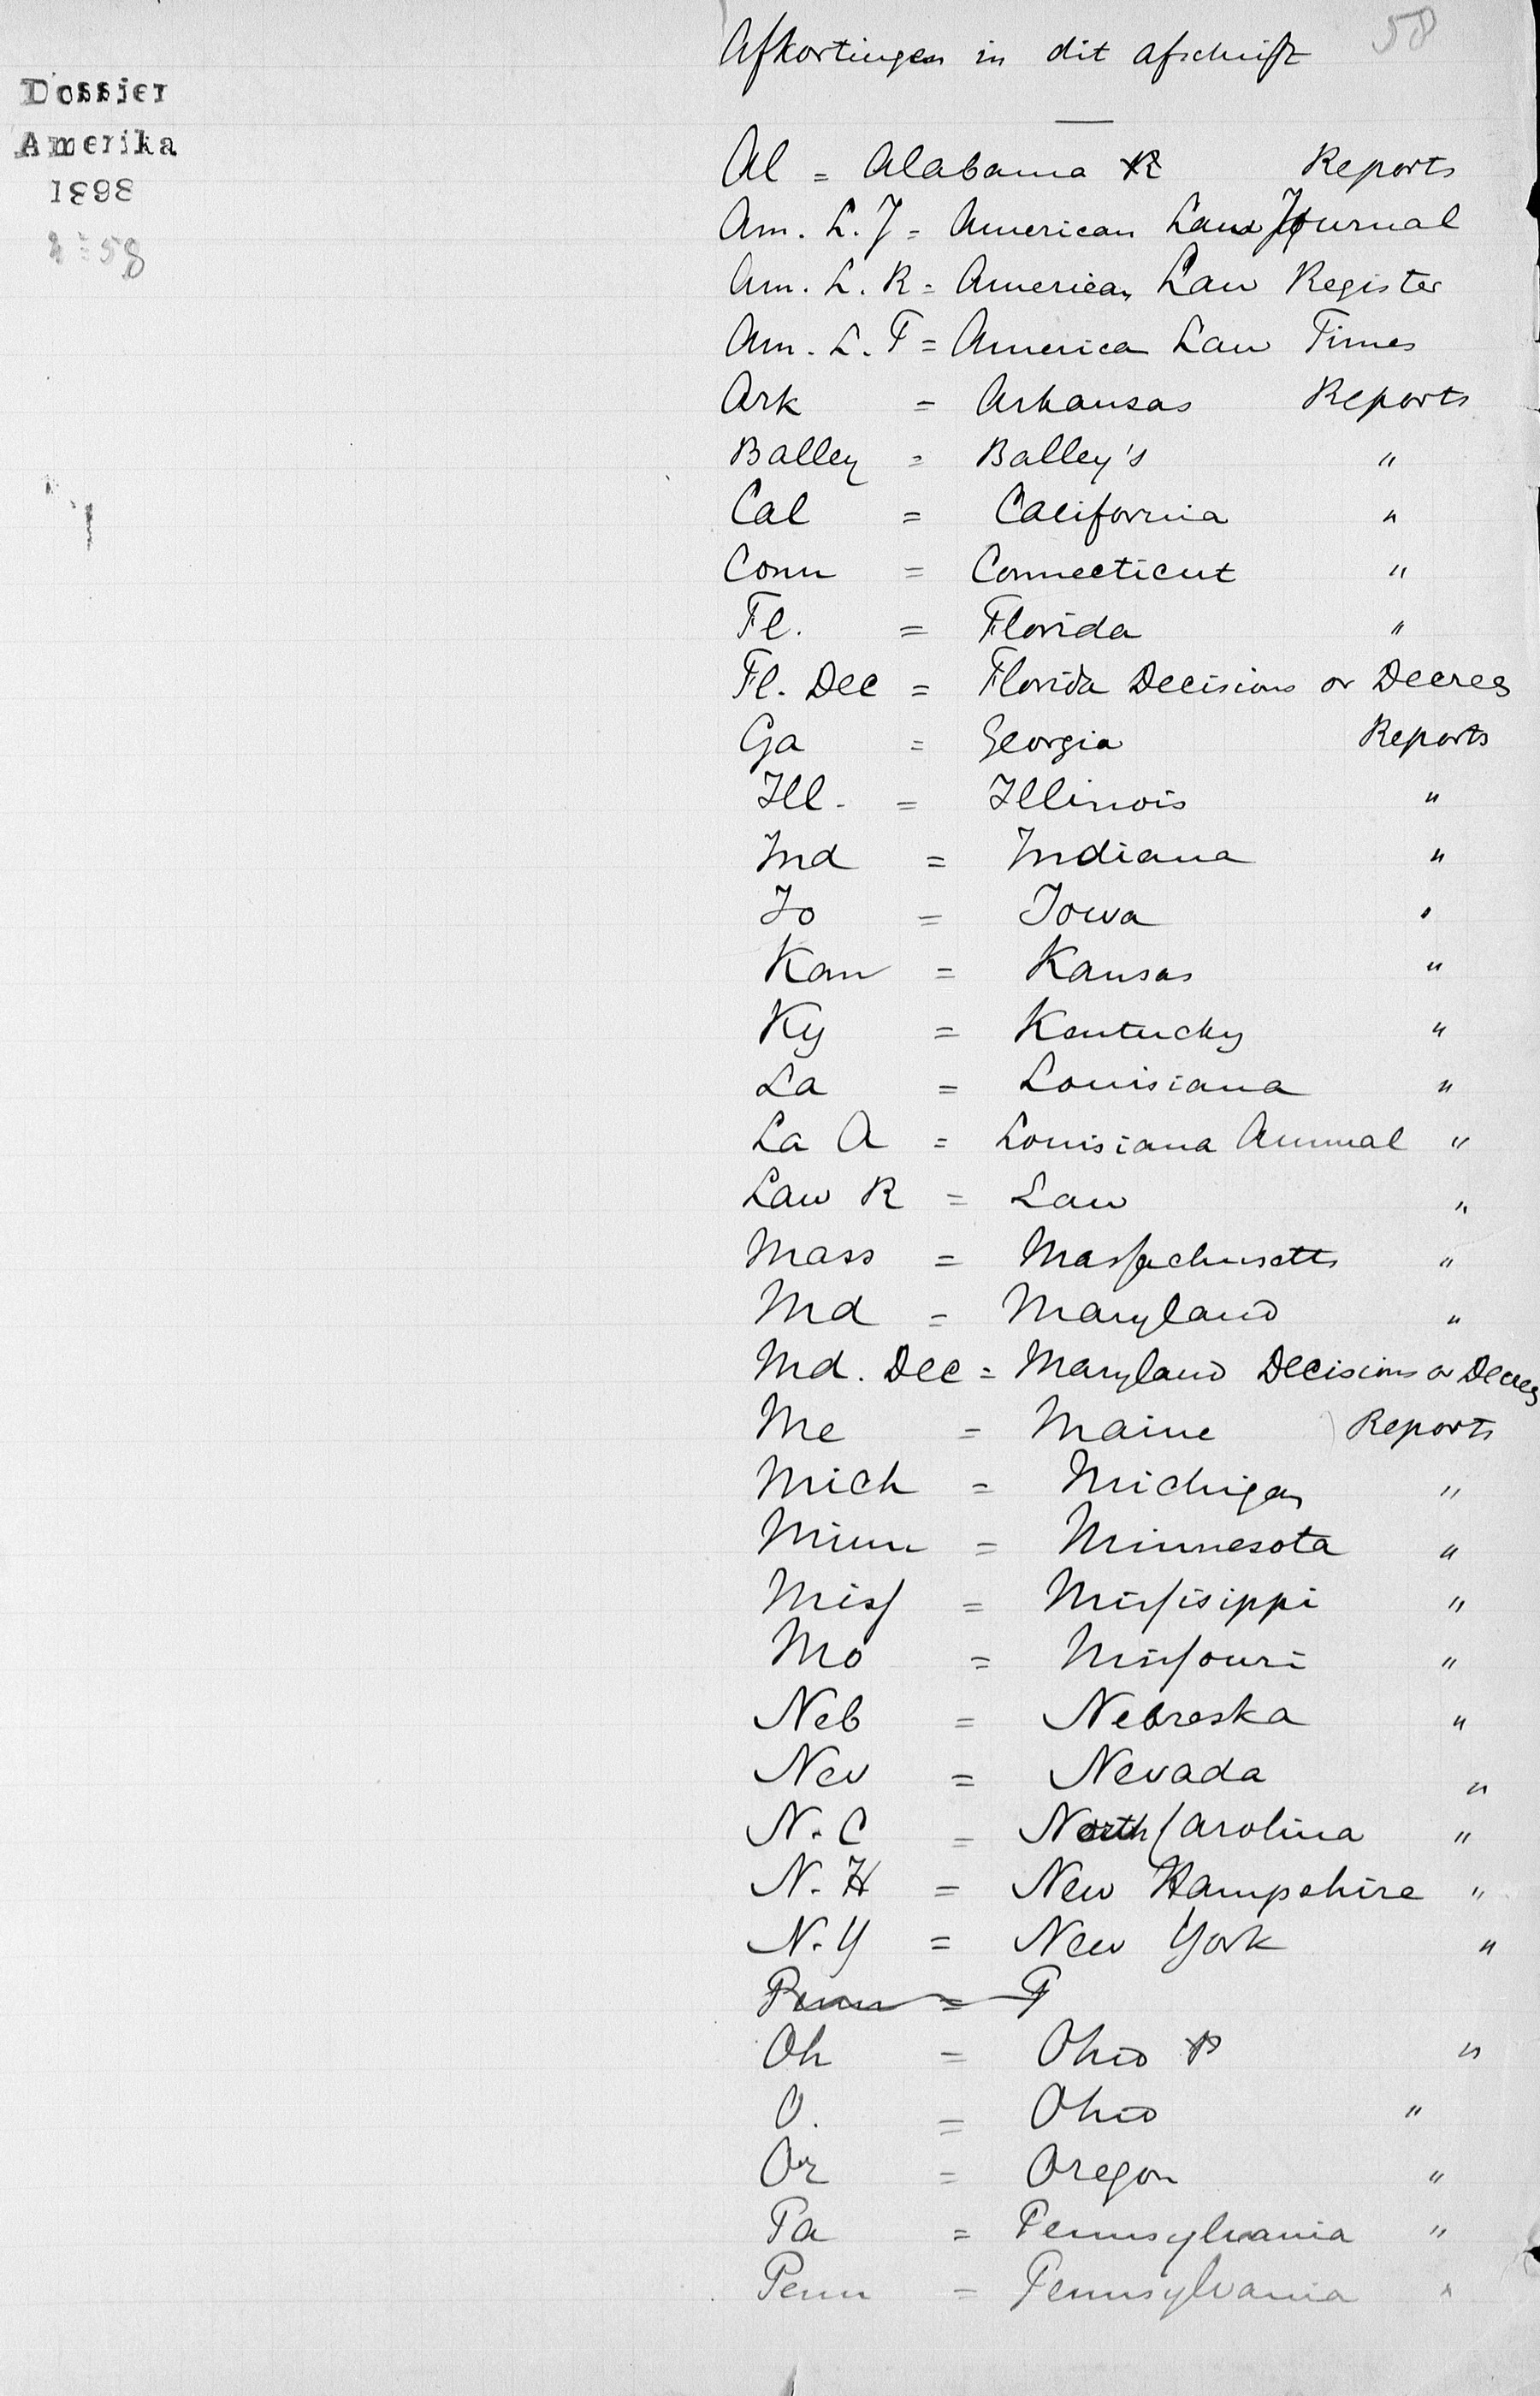 58
Afkortingen in dit afschrift
Dossier
Amerika
1898
Al = Alabama R Reports
Am. L. J = American Law Journal
Am. L. R = American Law Register
Am. L. T = America Law Times
Ark = Arkansas Reports
Balley = Balley's "
Cal = California "
Conn = Connecticut "
Fl. = Florida "
Fl. Dec = Florida Decisions or Decres
Ga = Georgia Reports
Ill. = Illinois "
Ind = Indiana "
Io = Iowa "
Kan = Kansas "
Ky = Kentucky "
La = Louisiana "
La A = Louisiana Annual "
Law R = Law "
Mass = Massachusetts "
Md = Maryland "
Md. Dec = Maryland Decisions or Decres
Me = Maine Reports
Mich = Michigan "
Minn = Minnesota "
Miss = Missisippi "
Mo = Missouri "
Neb = Nebreska "
Nev = Nevada "
N. C = North Carolina "
N. H = New Hampshire "
N. Y = New York "
Penn = P
Oh = Ohio R "
O. = Ohio "
Or = Oregon "
Pa = Pennsylvania "
Penn = Pennsylvania "